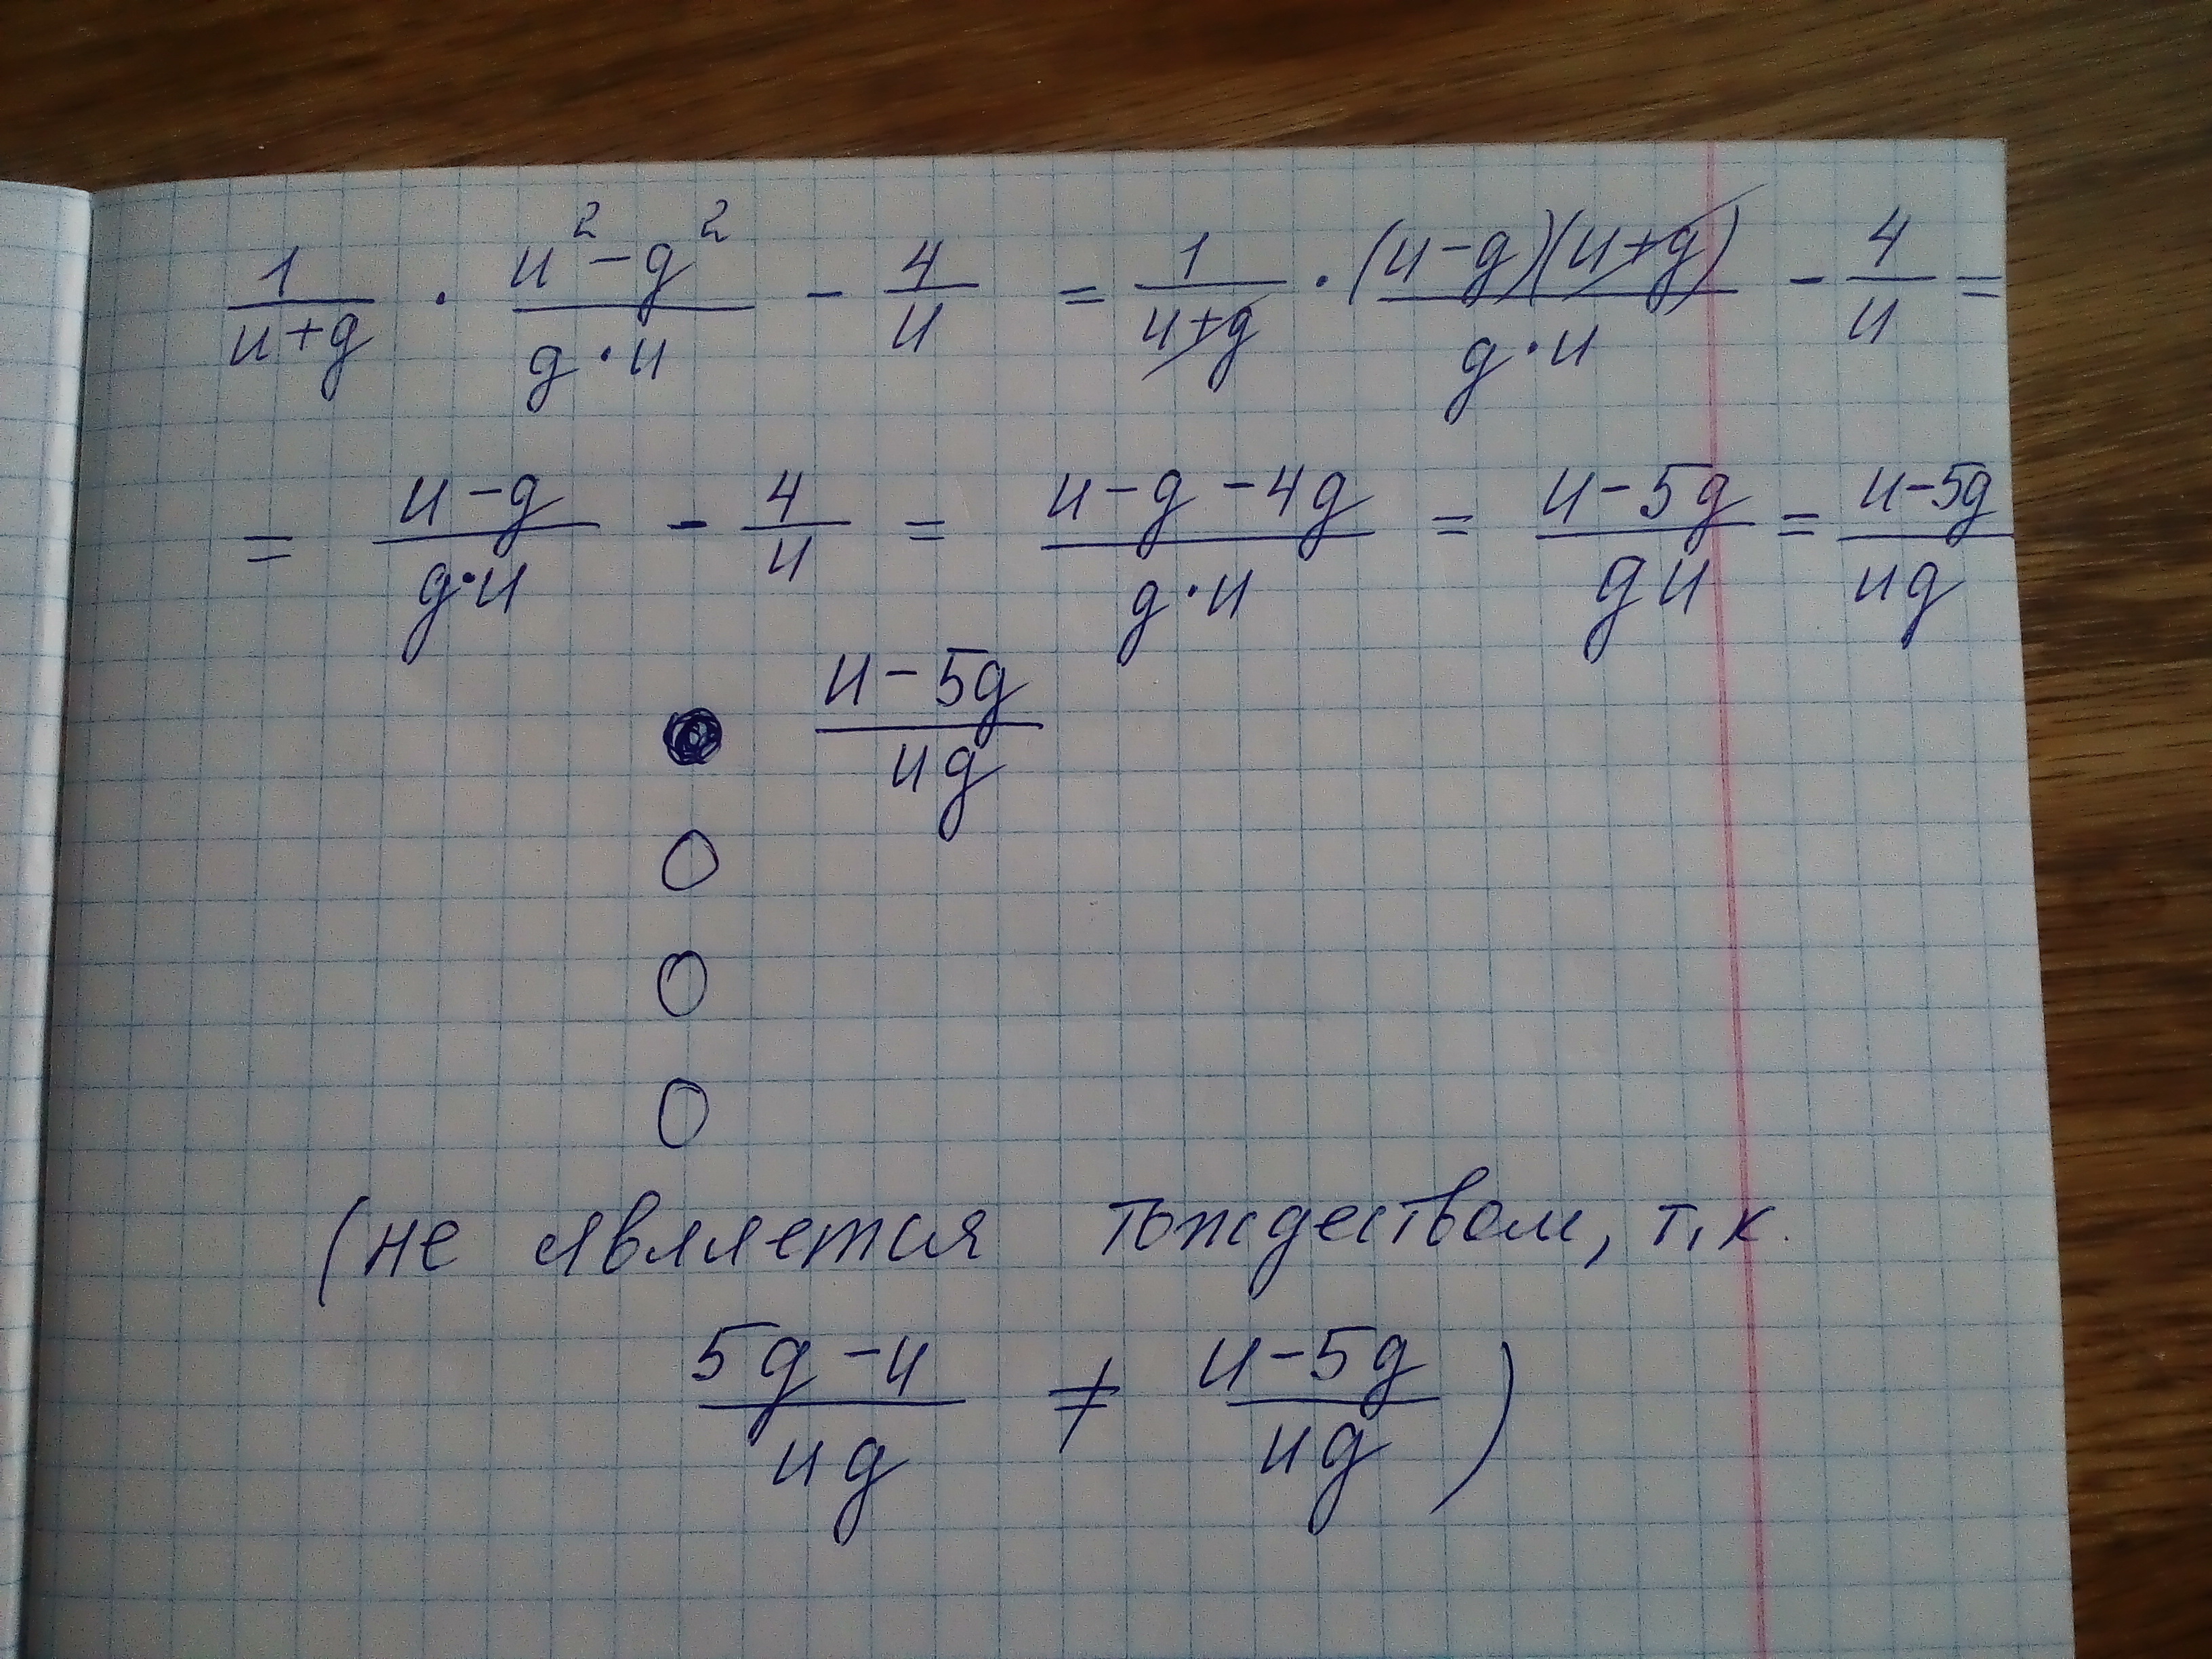 1/(u+g) · (u²-g²)/(g·u) - 4/u = 1/(u+g) · (u-g)(u+g)/(g·u) - 4/u =
= (u-g)/(g·u) - 4/u = (u-g-4g)/(g·u) = (u-5g)/(gu) = (u-5g)/(ug)
(u-5g)/(ug)
(не является тождеством, т.к.
(5g-u)/(ug) ≠ (u-5g)/(ug) )